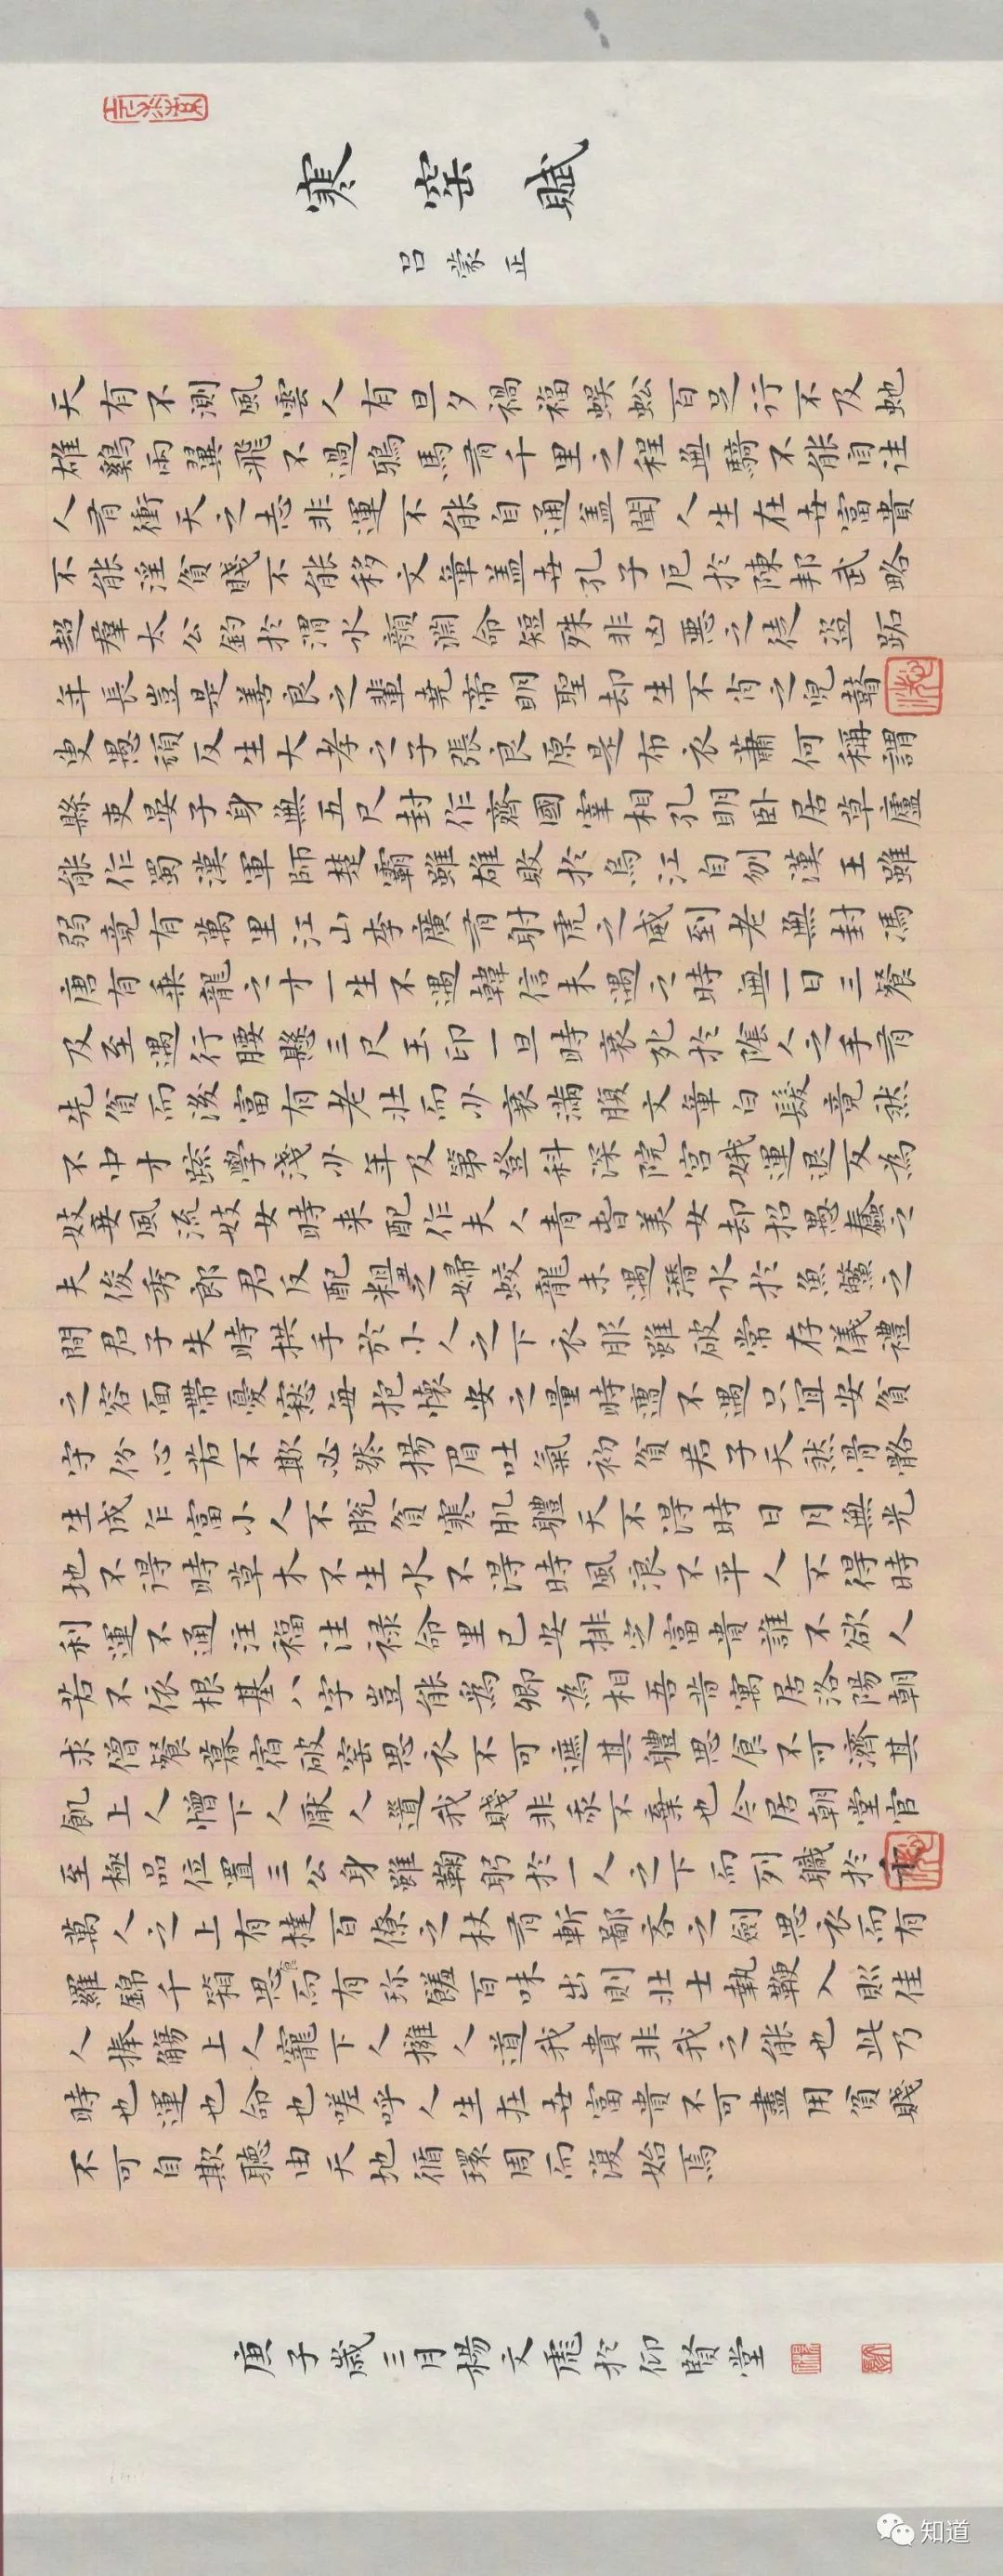 寒窑賦
呂蒙正
天有不測風雲人有旦夕禍福蜈蚣百足行不及虵
雄鷄兩翼飛不過鴉馬有千里之程無騎不能自往
人有衝天之志非運不能自通盖聞人生在世富貴
不能淫貧賤不能移文章盖世孔子厄於陳邦武略
超羣太公釣於渭水顔淵命短殊非凶悪之徒盜跖
年長豈是善良之輩堯帝明聖却生不肖之兒瞽
叟愚頑反生大孝之子張良原是布衣蕭何稱謂
縣吏晏子身無五尺封作齊國宰相孔明卧居草廬
能作蜀漢軍師楚霸雖雄敗於烏江自刎漢王雖
弱竟有萬里江山李廣有射虎之威到老無封馮
唐有乗龍之才一生不遇韓信未遇之時無一日三餐
及至遇行腰懸三尺玉印一旦時衰死於陰人之手有
先貧而後富有老壯而少衰滿腹文章白髮竟然
不中才踈學淺少年及第登科深院宮娥運退反為
妓妾風流妓女時来配作夫人青春美女却招愚蠢之
夫俊秀郎君反配粗丑之婦蛟龍未遇潛水於魚鱉之
間君子失時拱手於小人之下衣服雖破常存儀禮
之容面帶憂愁每抱懐安之量時遭不遇只宜安貧
守份心若不欺必然揚眉吐氣初貧君子天然骨骼
生成乍富小人不脫貧寒肌體天不得時日月無光
地不得時草木不生水不得時風浪不平人不得時
利運不通注福注祿命里已安排定富貴誰不欲人
若不依根基八字豈能為卿為相吾昔寓居洛陽朝
求僧餐暮宿破窑思衣不可遮其體思食不可濟其
飢上人憎下人厭人道我賤非我不棄也今居朝堂官
至極品位置三公身雖鞠躬於一人之下而列軄於千
萬人之上有撻百僚之杖有斬鄙吝之劍思衣而有
羅錦千箱思食而有珍饈百味出則壯士執鞭入則佳
人捧觴上人寵下人擁人道我貴非我之能也此乃
時也運也命也嗟呼人生在世富貴不可盡用貧賤
不可自欺聽由天地循環周而復始焉
庚子歲三月楊文虎於仰賢堂
知道